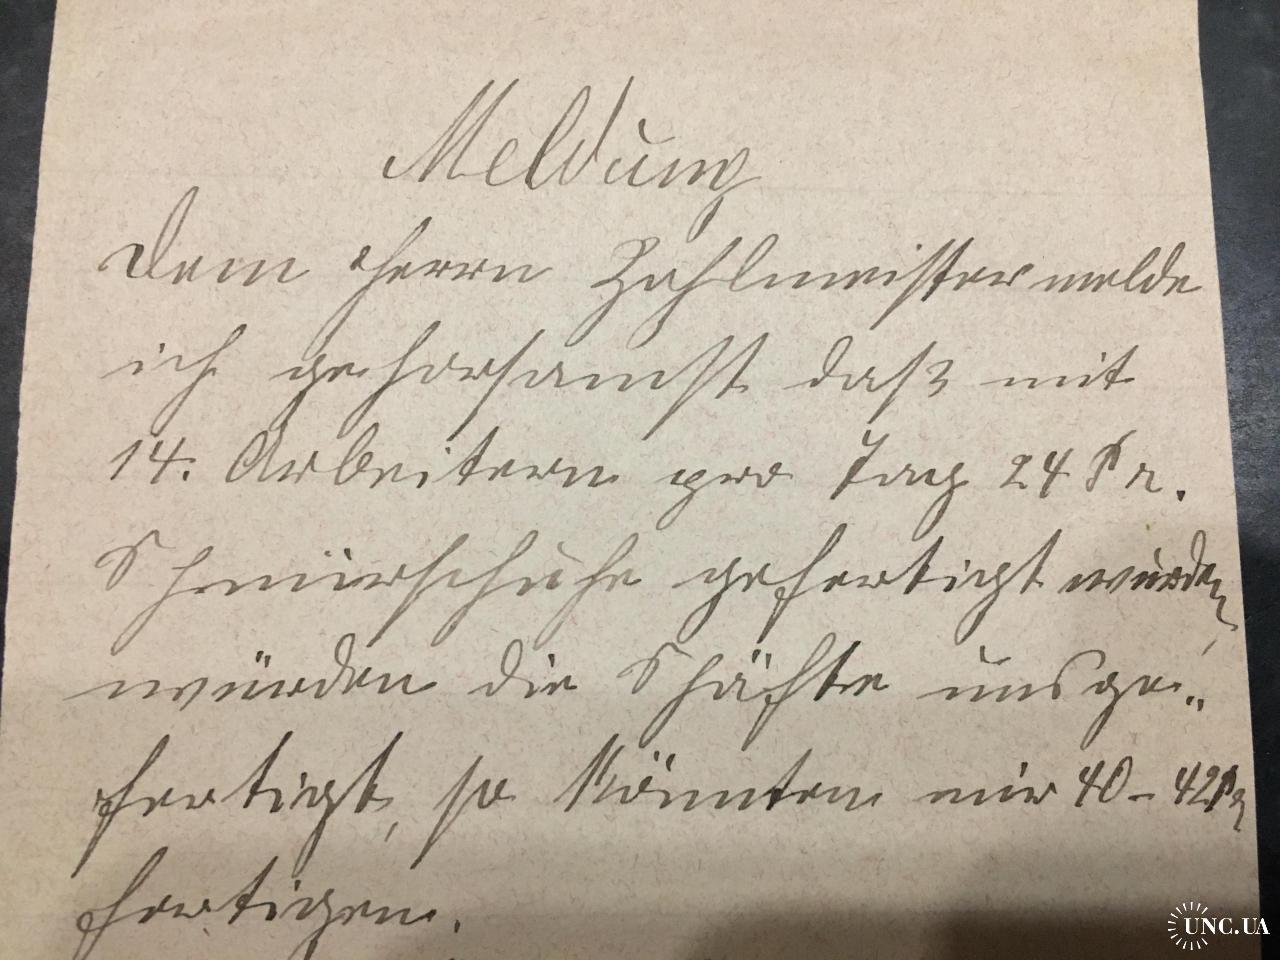 Meldung
Dem Herrn Zahlmeister melde
ich gehorsamst daß mit
14. Arbeitern pro Tag 24 Pr.
Schnürschuhe gefertigt wurden,
würden die Schäfte uns ge-
fertigt, so könnten wir 40 - 42 Pr
fertigen.
UNC.UA